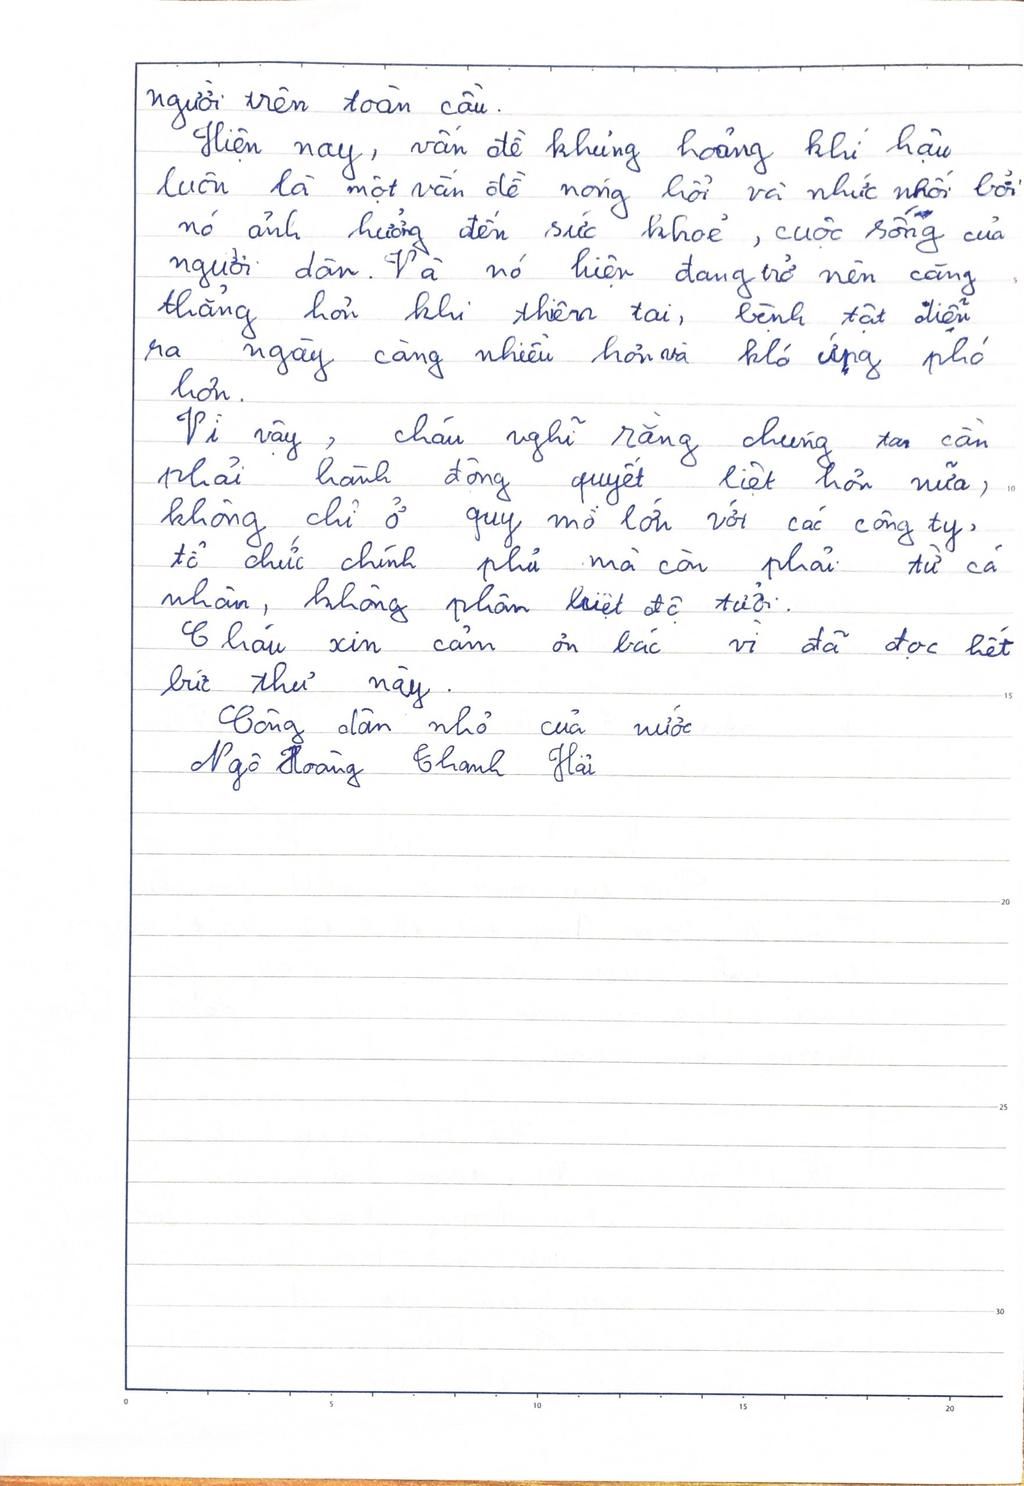 người trên toàn cầu.
Hiện nay, vấn đề khủng hoảng khí hậu
luôn là một vấn đề nóng hổi và nhức nhối bởi
nó ảnh hưởng đến sức khoẻ, cuộc sống của
người dân. Và nó hiện đang trở nên căng
thẳng hơn khi thiên tai, bệnh tật diễn
ra ngày càng nhiều hơn và khó ứng phó
hơn.
Vì vậy, cháu nghĩ rằng chúng ta cần
phải hành động quyết liệt hơn nữa,
không chỉ ở quy mô lớn với các công ty,
tổ chức chính phủ mà còn phải từ cá
nhân, không phân biệt độ tuổi.
Cháu xin cảm ơn bác vì đã đọc hết
bức thư này.
Công dân nhỏ của nước
Ngô Hoàng Thanh Hải
5
10
15
20
25
30
0 5 10 15 20